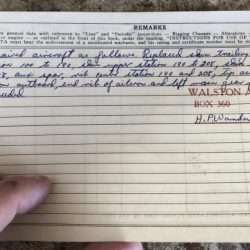 REMARKS
general data with reference to "Line" and "Periodic" inspections — Rigging Changes — Alterations
engine — or outlined in the front of this book, under the heading, "INSTRUCTIONS FOR USE OF
must bear the endorsement of a certificated mechanic, and his rating and certificate number must be
aircraft as follows. Replaced skin trailing
100 to 190, skin upper station 190 to 208, skin
8, aux spar, rib center station 190 and 208, tip
outboard, end rib of aileron and left main gear
WALSTON A
BOX 360